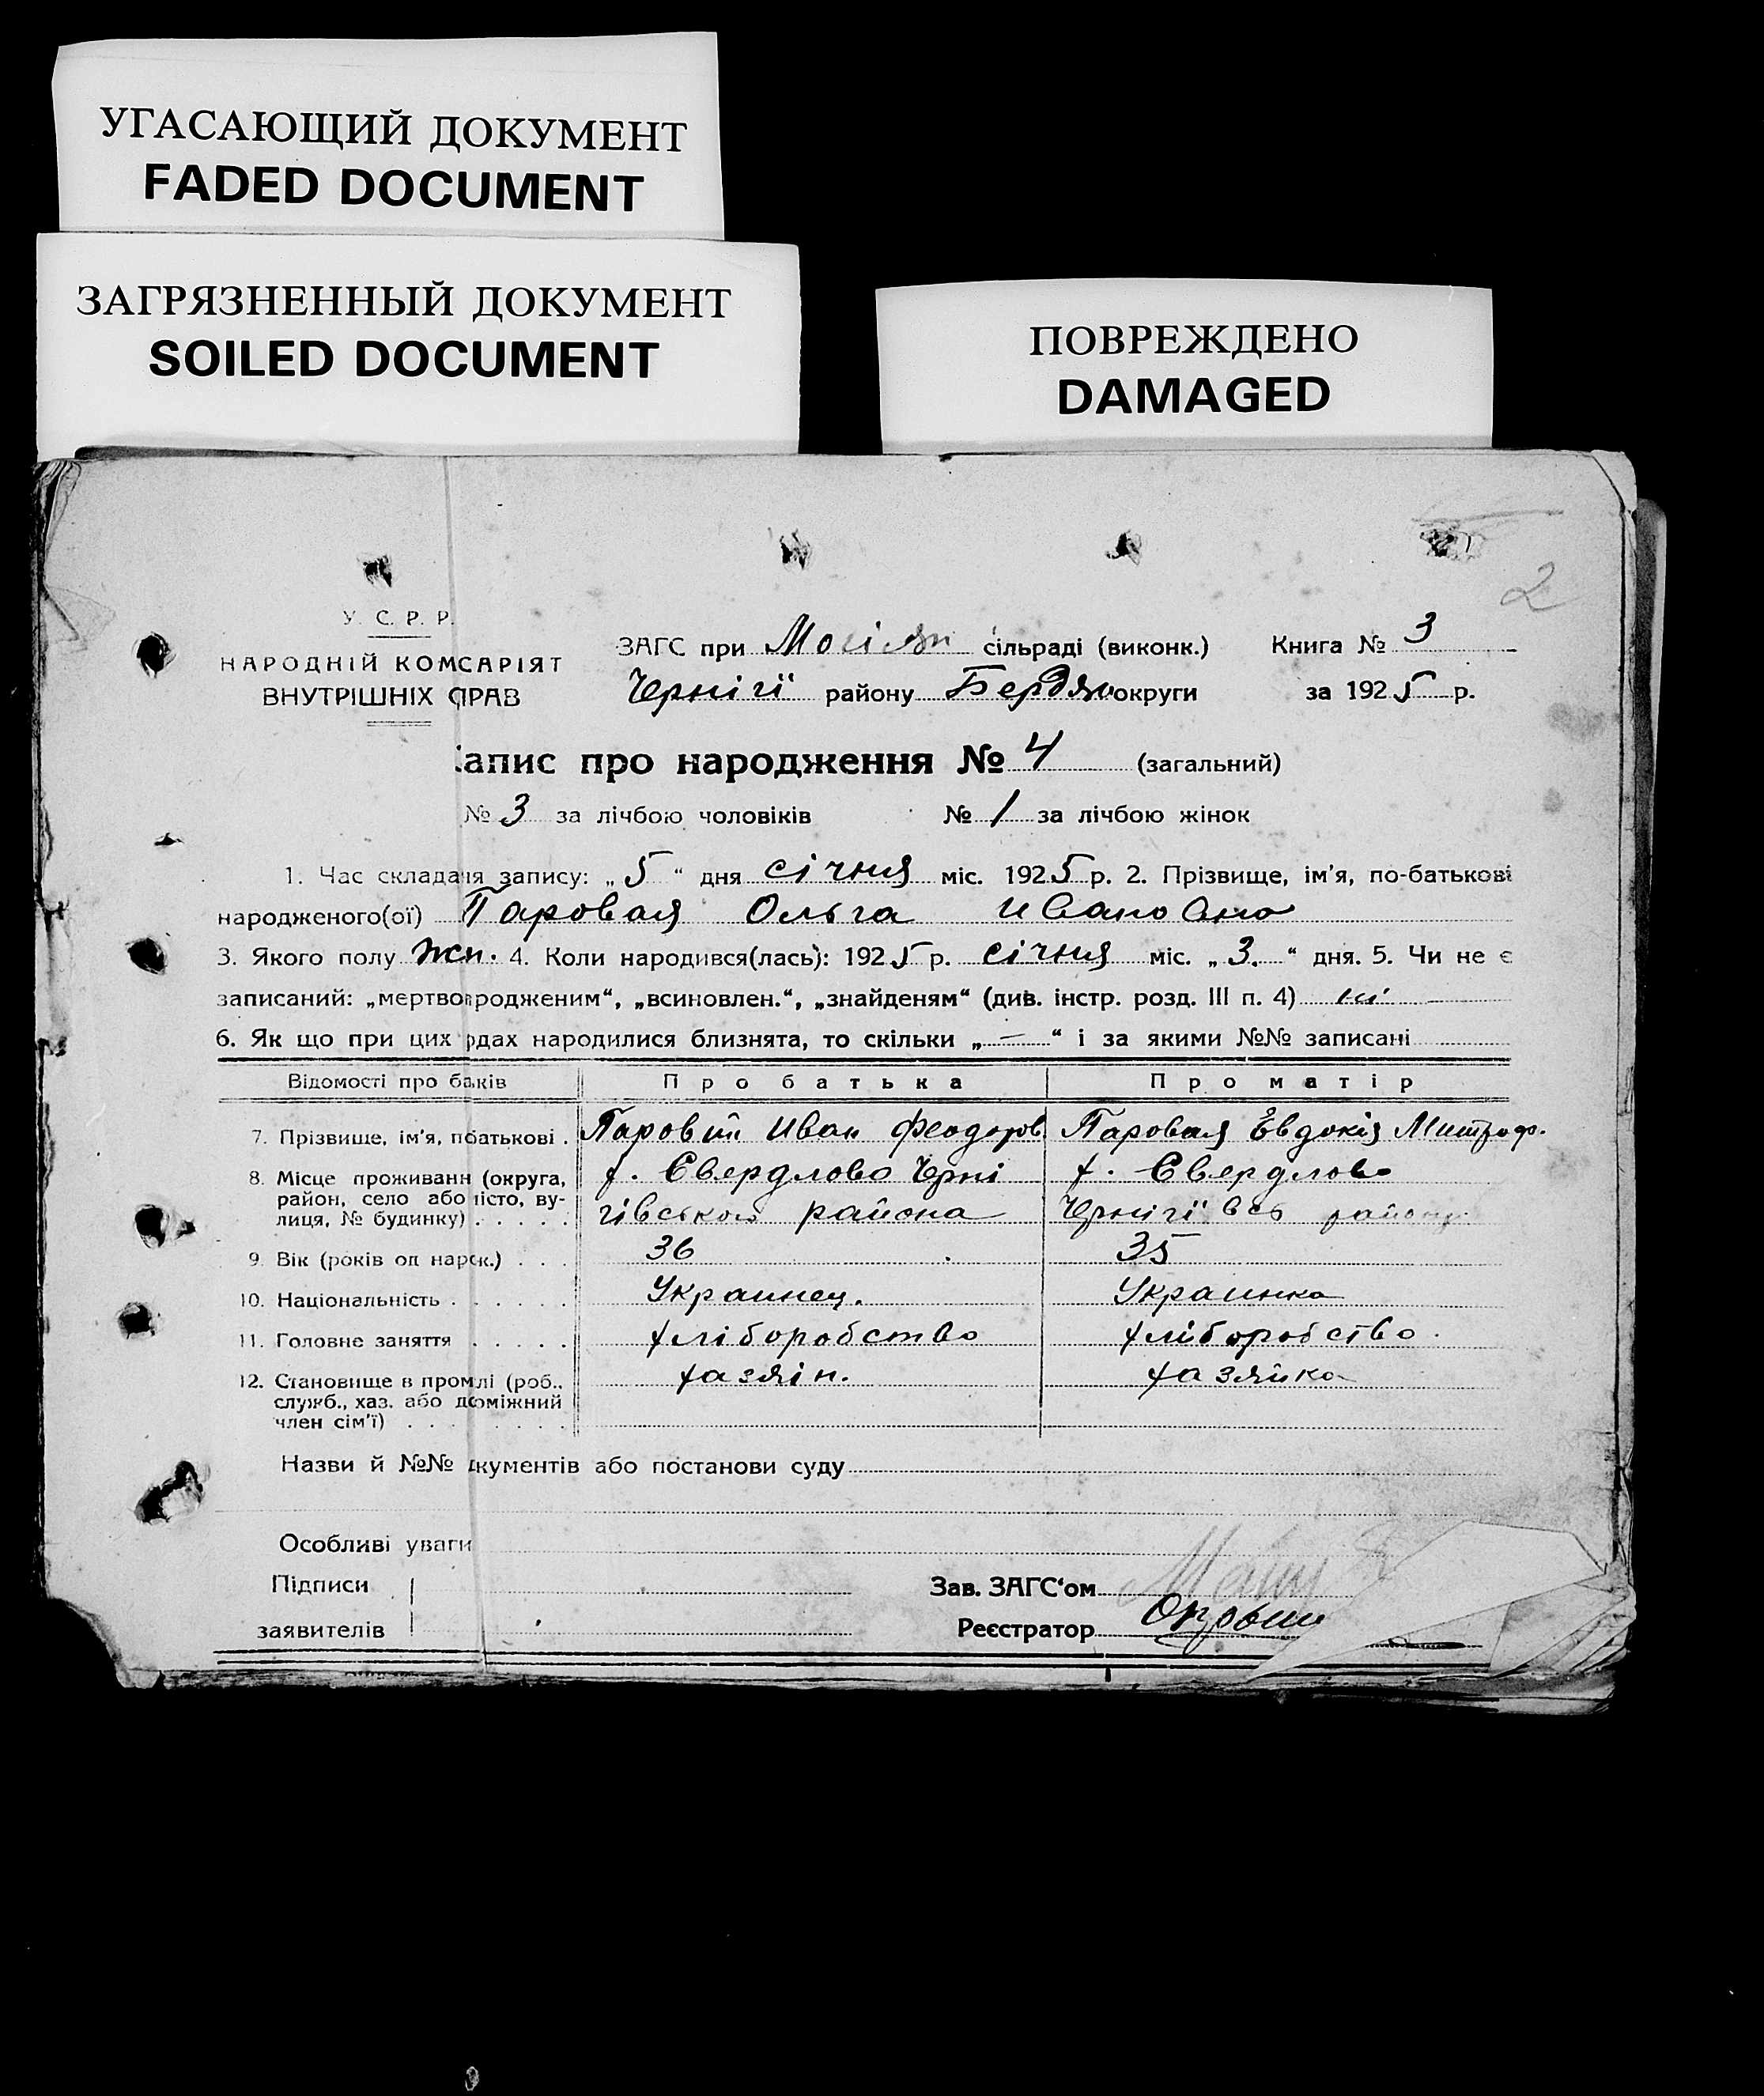 УГАСАЮЩИЙ ДОКУМЕНТ
FADED DOCUMENT
ЗАГРЯЗНЕННЫЙ ДОКУМЕНТ
SOILED DOCUMENT
ПОВРЕЖДЕНО
DAMAGED
2
У. С. Р. Р.
НАРОДНІЙ КОМСАРІЯТ
ВНУТРІШНІХ ПРАВ
ЗАГС при сільраді (виконк.) Книга № 3
Чернігії району Бердян округи за 1925 р.
апис про народження № 4 (загальний)
№ 3 за лічбою чоловіків № 1 за лічбою жінок
1. Час складаня запису: „5“ дня січня міс. 1925 р. 2. Прізвище, ім'я, по-батькові
народженого(ої) Паровая Ольга Ивановно
3. Якого полу жн. 4. Коли народився(лась): 1925 р. січня міс. „3.“ дня. 5. Чи не є
записаний: „мертвородженим“, „всиновлен.“, „знайденям“ (див. інстр. розд. III п. 4) ні
6. Як що при цих рдах народилися близнята, то скільки „—“ і за якими №№ записані
Відомості про баків Про батька Про матір
7. Прізвище, ім'я, пбатькові . Паровий Иван Феодоров Паровая Евдокія Митроф.
8. Місце проживанн (округа, х. Свердлово Черні х. Свердлово
район, село або місто, ву-
лиця, № будинку) . . . . . гівського района Чернігівсь району
9. Вік (років од нарож.) . . . 36 35
10. Національність . . . . . . Украинец. Украинка
11. Головне заняття . . . . . хліборобство хліборобство.
12. Становище в промлі (роб., хазяін. хазяйка
служб., хаз. або доміжний
член сім'ї) . . . . . . . .
Назви й №№ дкументів або постанови суду
Особливі уваги
Підписи
заявителів
Зав. ЗАГС'ом
Реєстратор